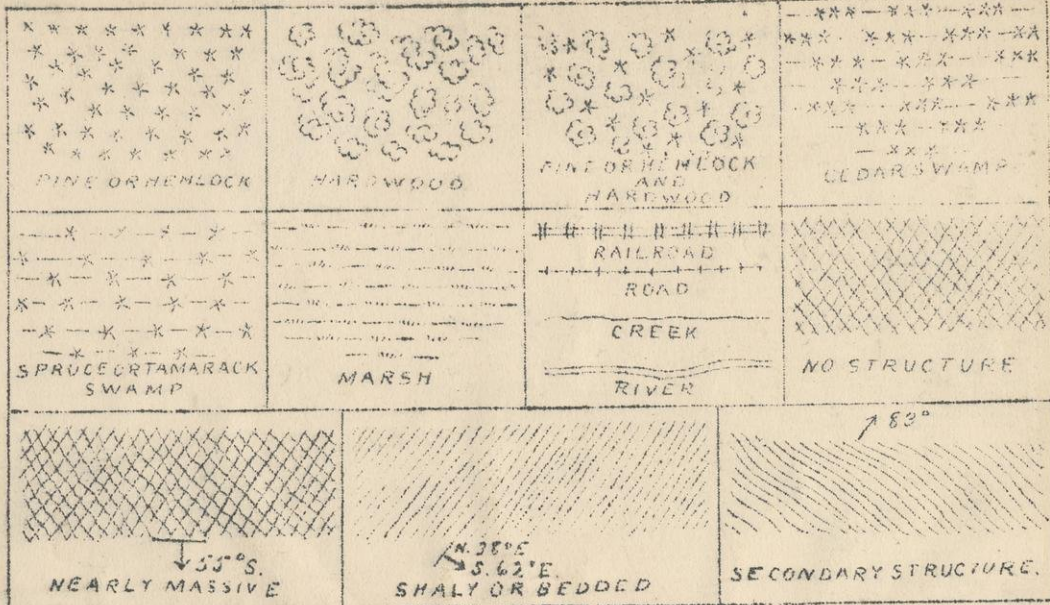 PINE OR HEMLOCK
HARDWOOD
PINE OR HEMLOCK
AND
HARDWOOD
CEDAR SWAMP
SPRUCE OR TAMARACK
SWAMP
MARSH
RAILROAD
ROAD
CREEK
RIVER
NO STRUCTURE
55°S.
NEARLY MASSIVE
N. 38°E
S. 62°E.
SHALY OR BEDDED
83°
SECONDARY STRUCTURE.